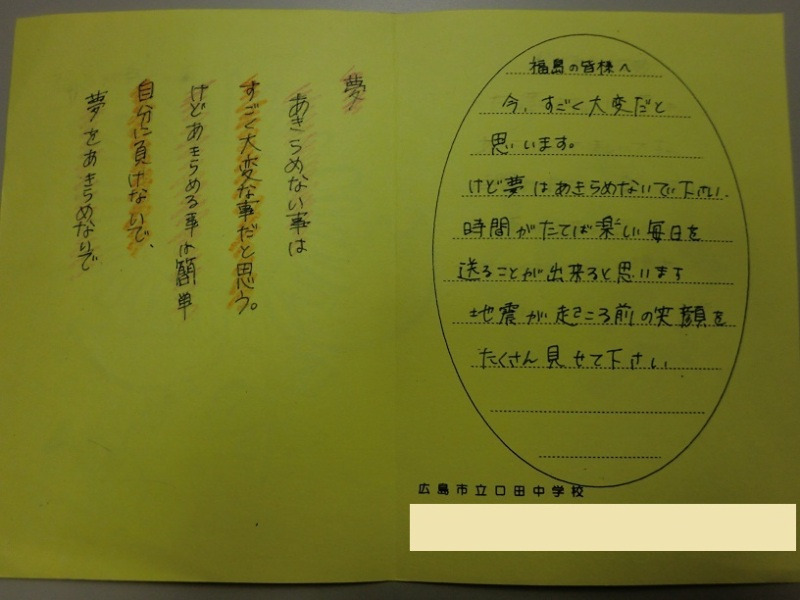 夢
あきらめない事は
すごく大変な事だと思う。
けどあきらめる事は簡単
自分に負けないで、
夢をあきらめないで
福島の皆様へ
今、すごく大変だと
思います。
けど夢はあきらめないで下さい。
時間がたてば楽しい毎日を
送ることが出来ると思います
地震が起こる前の笑顔を
たくさん見せて下さい
広島市立口田中学校